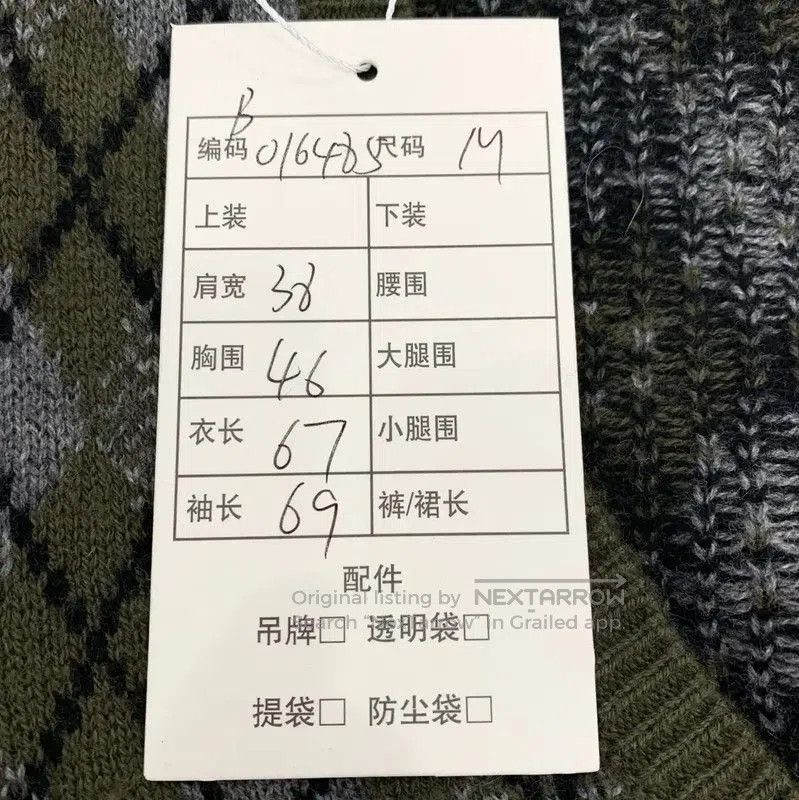 B
编码 016485 尺码 M
上装 下装
肩宽 38 腰围
胸围 46 大腿围
衣长 67 小腿围
袖长 69 裤/裙长
配件
Original listing by NEXTARROW
Search "Nextarrow" in Grailed app
吊牌□ 透明袋□
提袋□ 防尘袋□